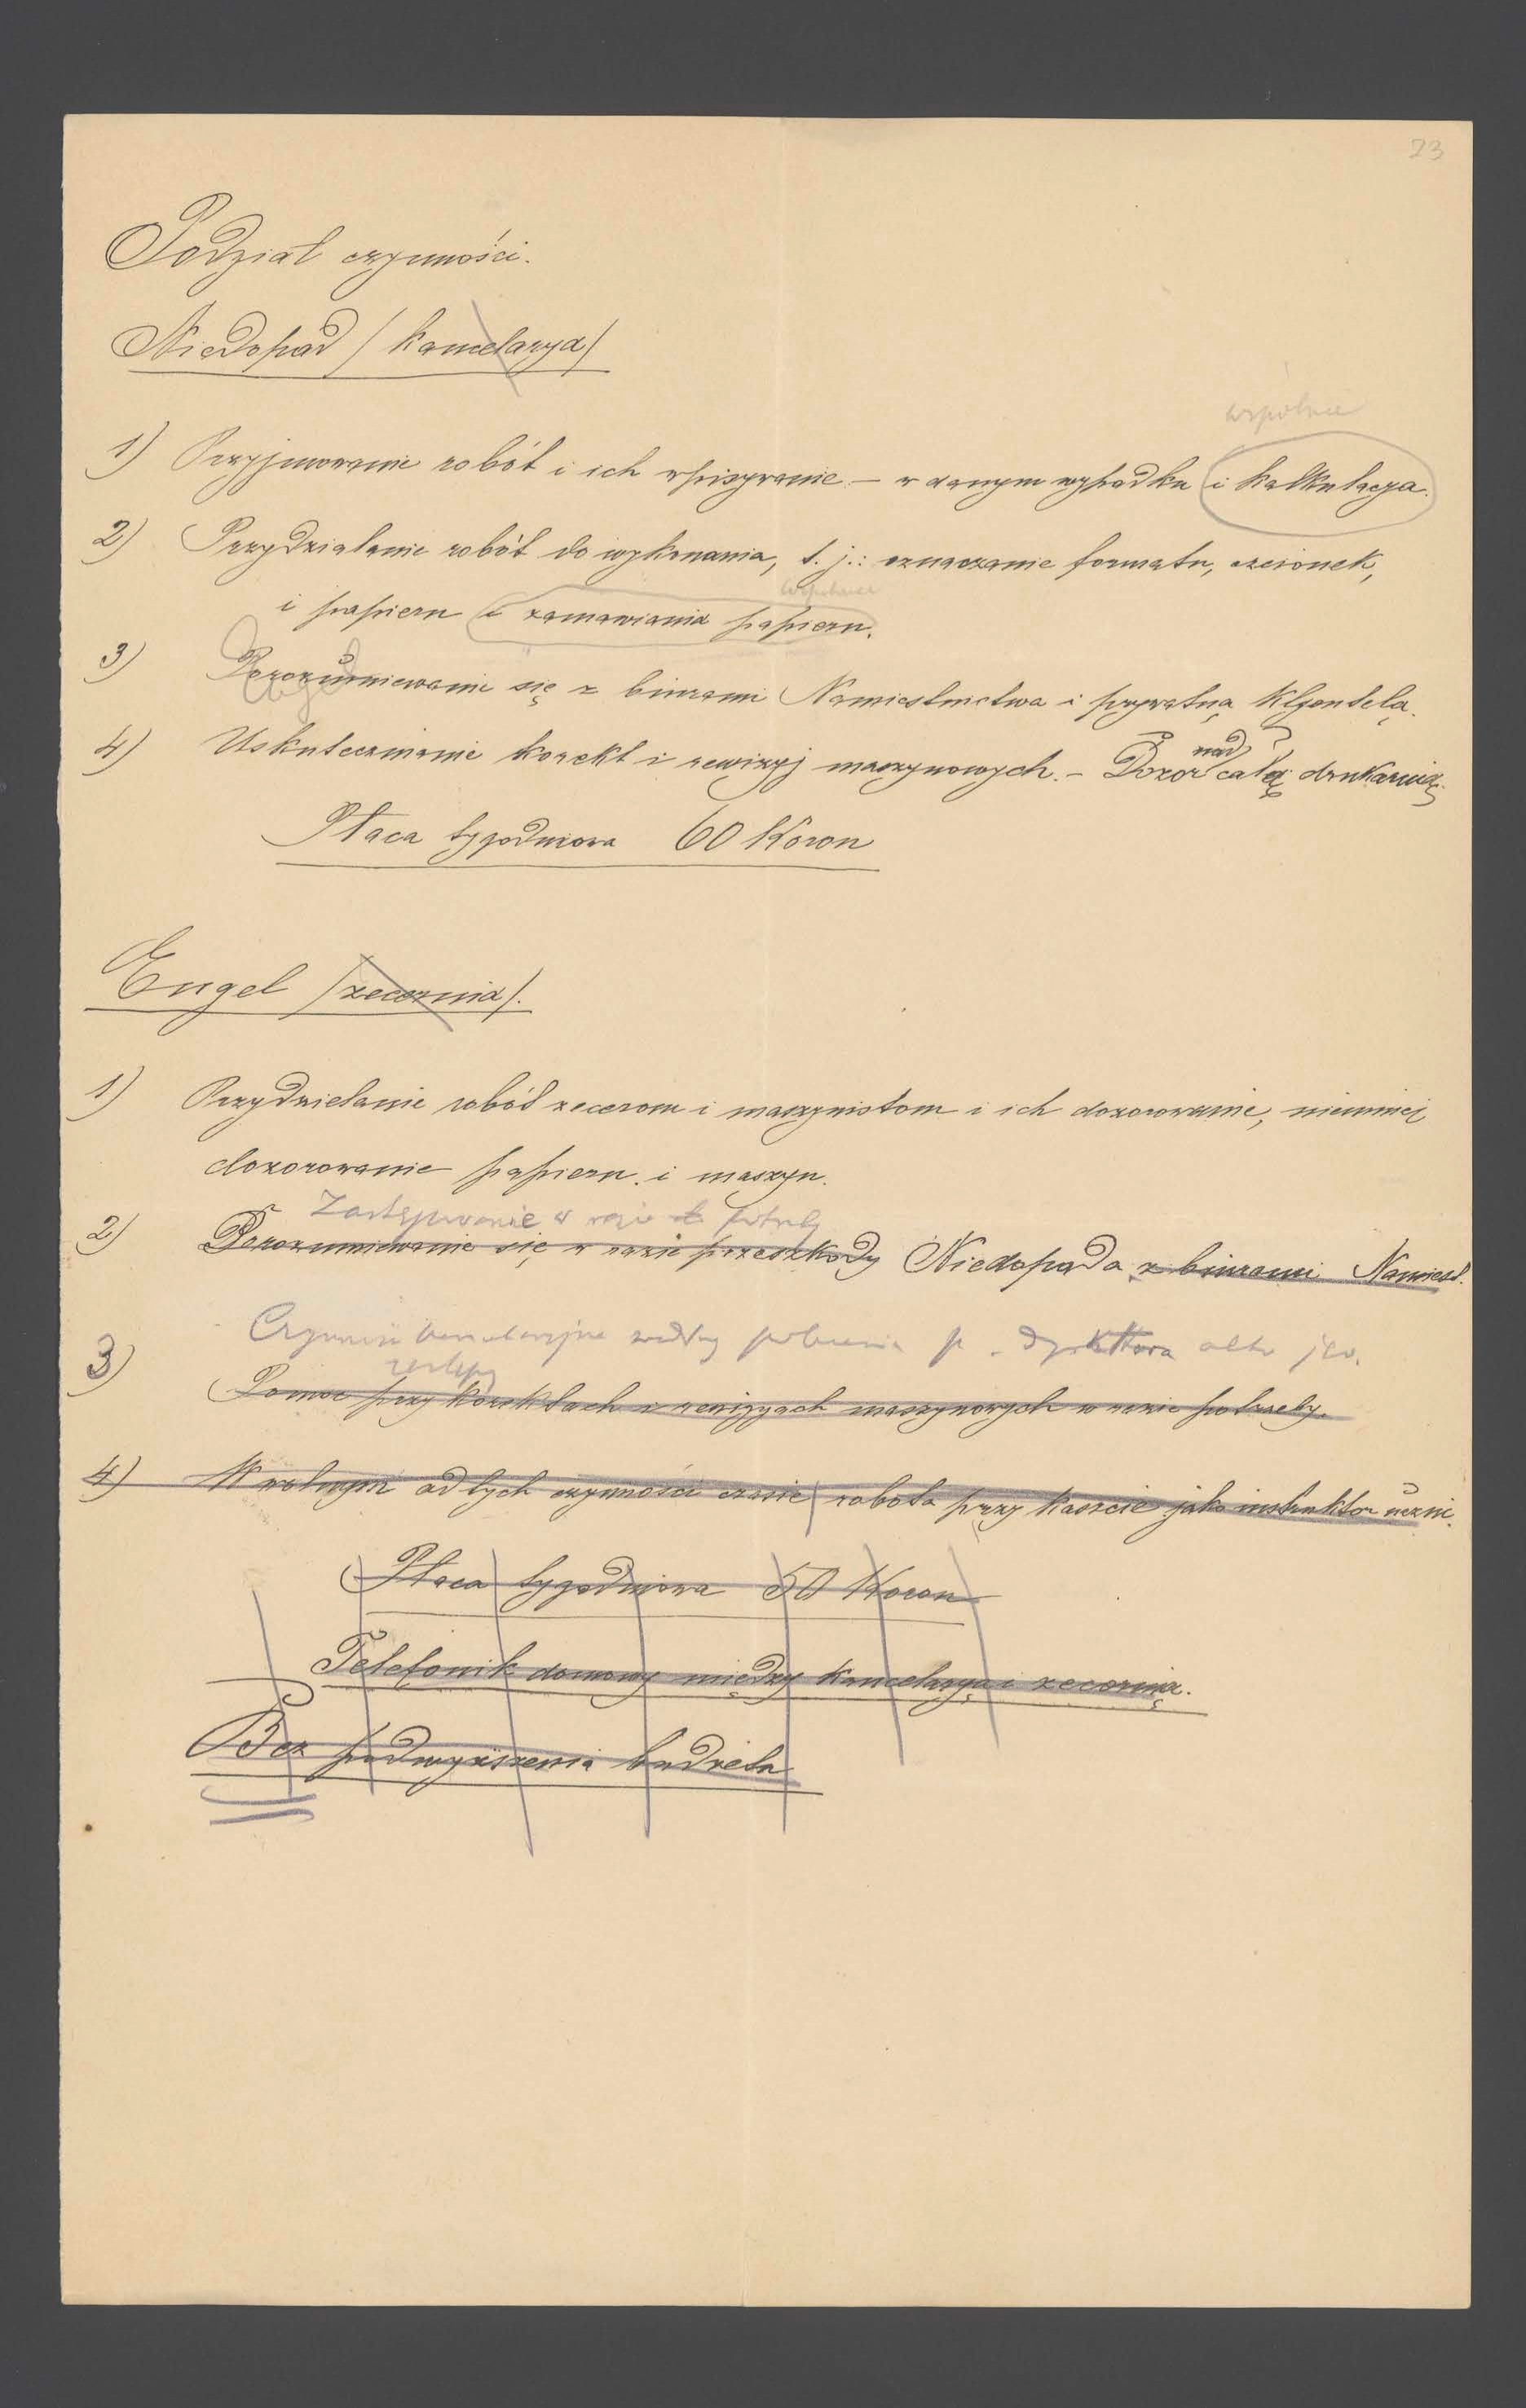 23
Podział czynności.
Niedopad / kancelarya /
wspólnie
1) Przyjmowanie robót i ich wpisywanie. — w danym wypadku i kalkulacya.
2) Przydzielanie robót do wykonania, t. j.: oznaczanie formatu, czcionek,
wspólnie
i papieru i zamawiania papieru.
3) Porozumiewanie się z biurami Namiestnictwa i prywatną klyentelą.
nad
4) Uskutecznianie korekt i rewizyj maszynowych. – Dozór całą drukarnią.
Płaca tygodniowa 60 Koron
Engel / zecernia /.
1) Przydzielanie robót zecerom i maszynistom i ich dozorowanie, niemniej
dozorowanie papieru i maszyn.
Zastępowanie w razie potrzeby
2) Porozumiewanie się w razie przeszkody Niedopada z biurami Namiest.
Czynności kancelaryjne według polecenia p. dyrektora albo jego
zastępcy
3) Pomoc przy korektach i rewizyach maszynowych w razie potrzeby.
4) W wolnym od tych czynności czasie robota przy kaszcie jako instruktor uczni.
Płaca tygodniowa 50 Koron
Telefonik domowy między kancelaryą i zecernią.
Bez podwyższenia budżetu